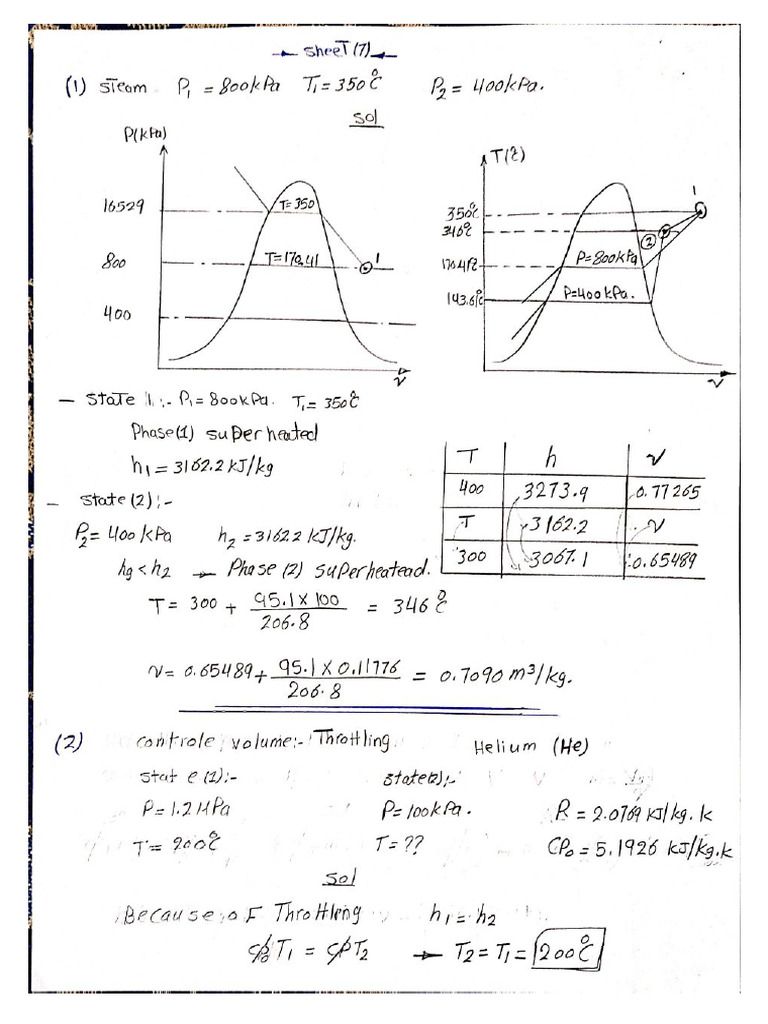 Sheet (7)
(1) Steam P1 = 800 kPa T1 = 350°C P2 = 400 kPa.
Sol
P(kPa)
16529
800
400
T=350
T=170.41
1
v
T(°C)
350°C
346°C
170.41°C
143.61°C
P=800kPa
P=400kPa.
1
2
v
- State 1 :- P1 = 800 kPa. T1 = 350°C
Phase (1) superheated
h1 = 3162.2 KJ/kg
- State (2) :-
P2 = 400 kPa h2 = 3162.2 KJ/kg.
hg < h2 → Phase (2) superheatead.
T h v
400 3273.9 0.77265
T 3162.2 v
300 3067.1 0.65489
T = 300 + 95.1 x 100 / 206.8 = 346°C
v = 0.65489 + 95.1 X 0.11776 / 206.8 = 0.7090 m³/kg.
(2) controle volume:- Throttling Helium (He)
state (1):- state(2):-
P = 1.2 MPa P = 100 kPa. R = 2.0769 KJ/kg.k
T = 200°C T = ?? CPo = 5.1926 KJ/kg.k
Sol
Because of Throttleng h1 = h2
cpo T1 = cp T2 → T2 = T1 = 200°C